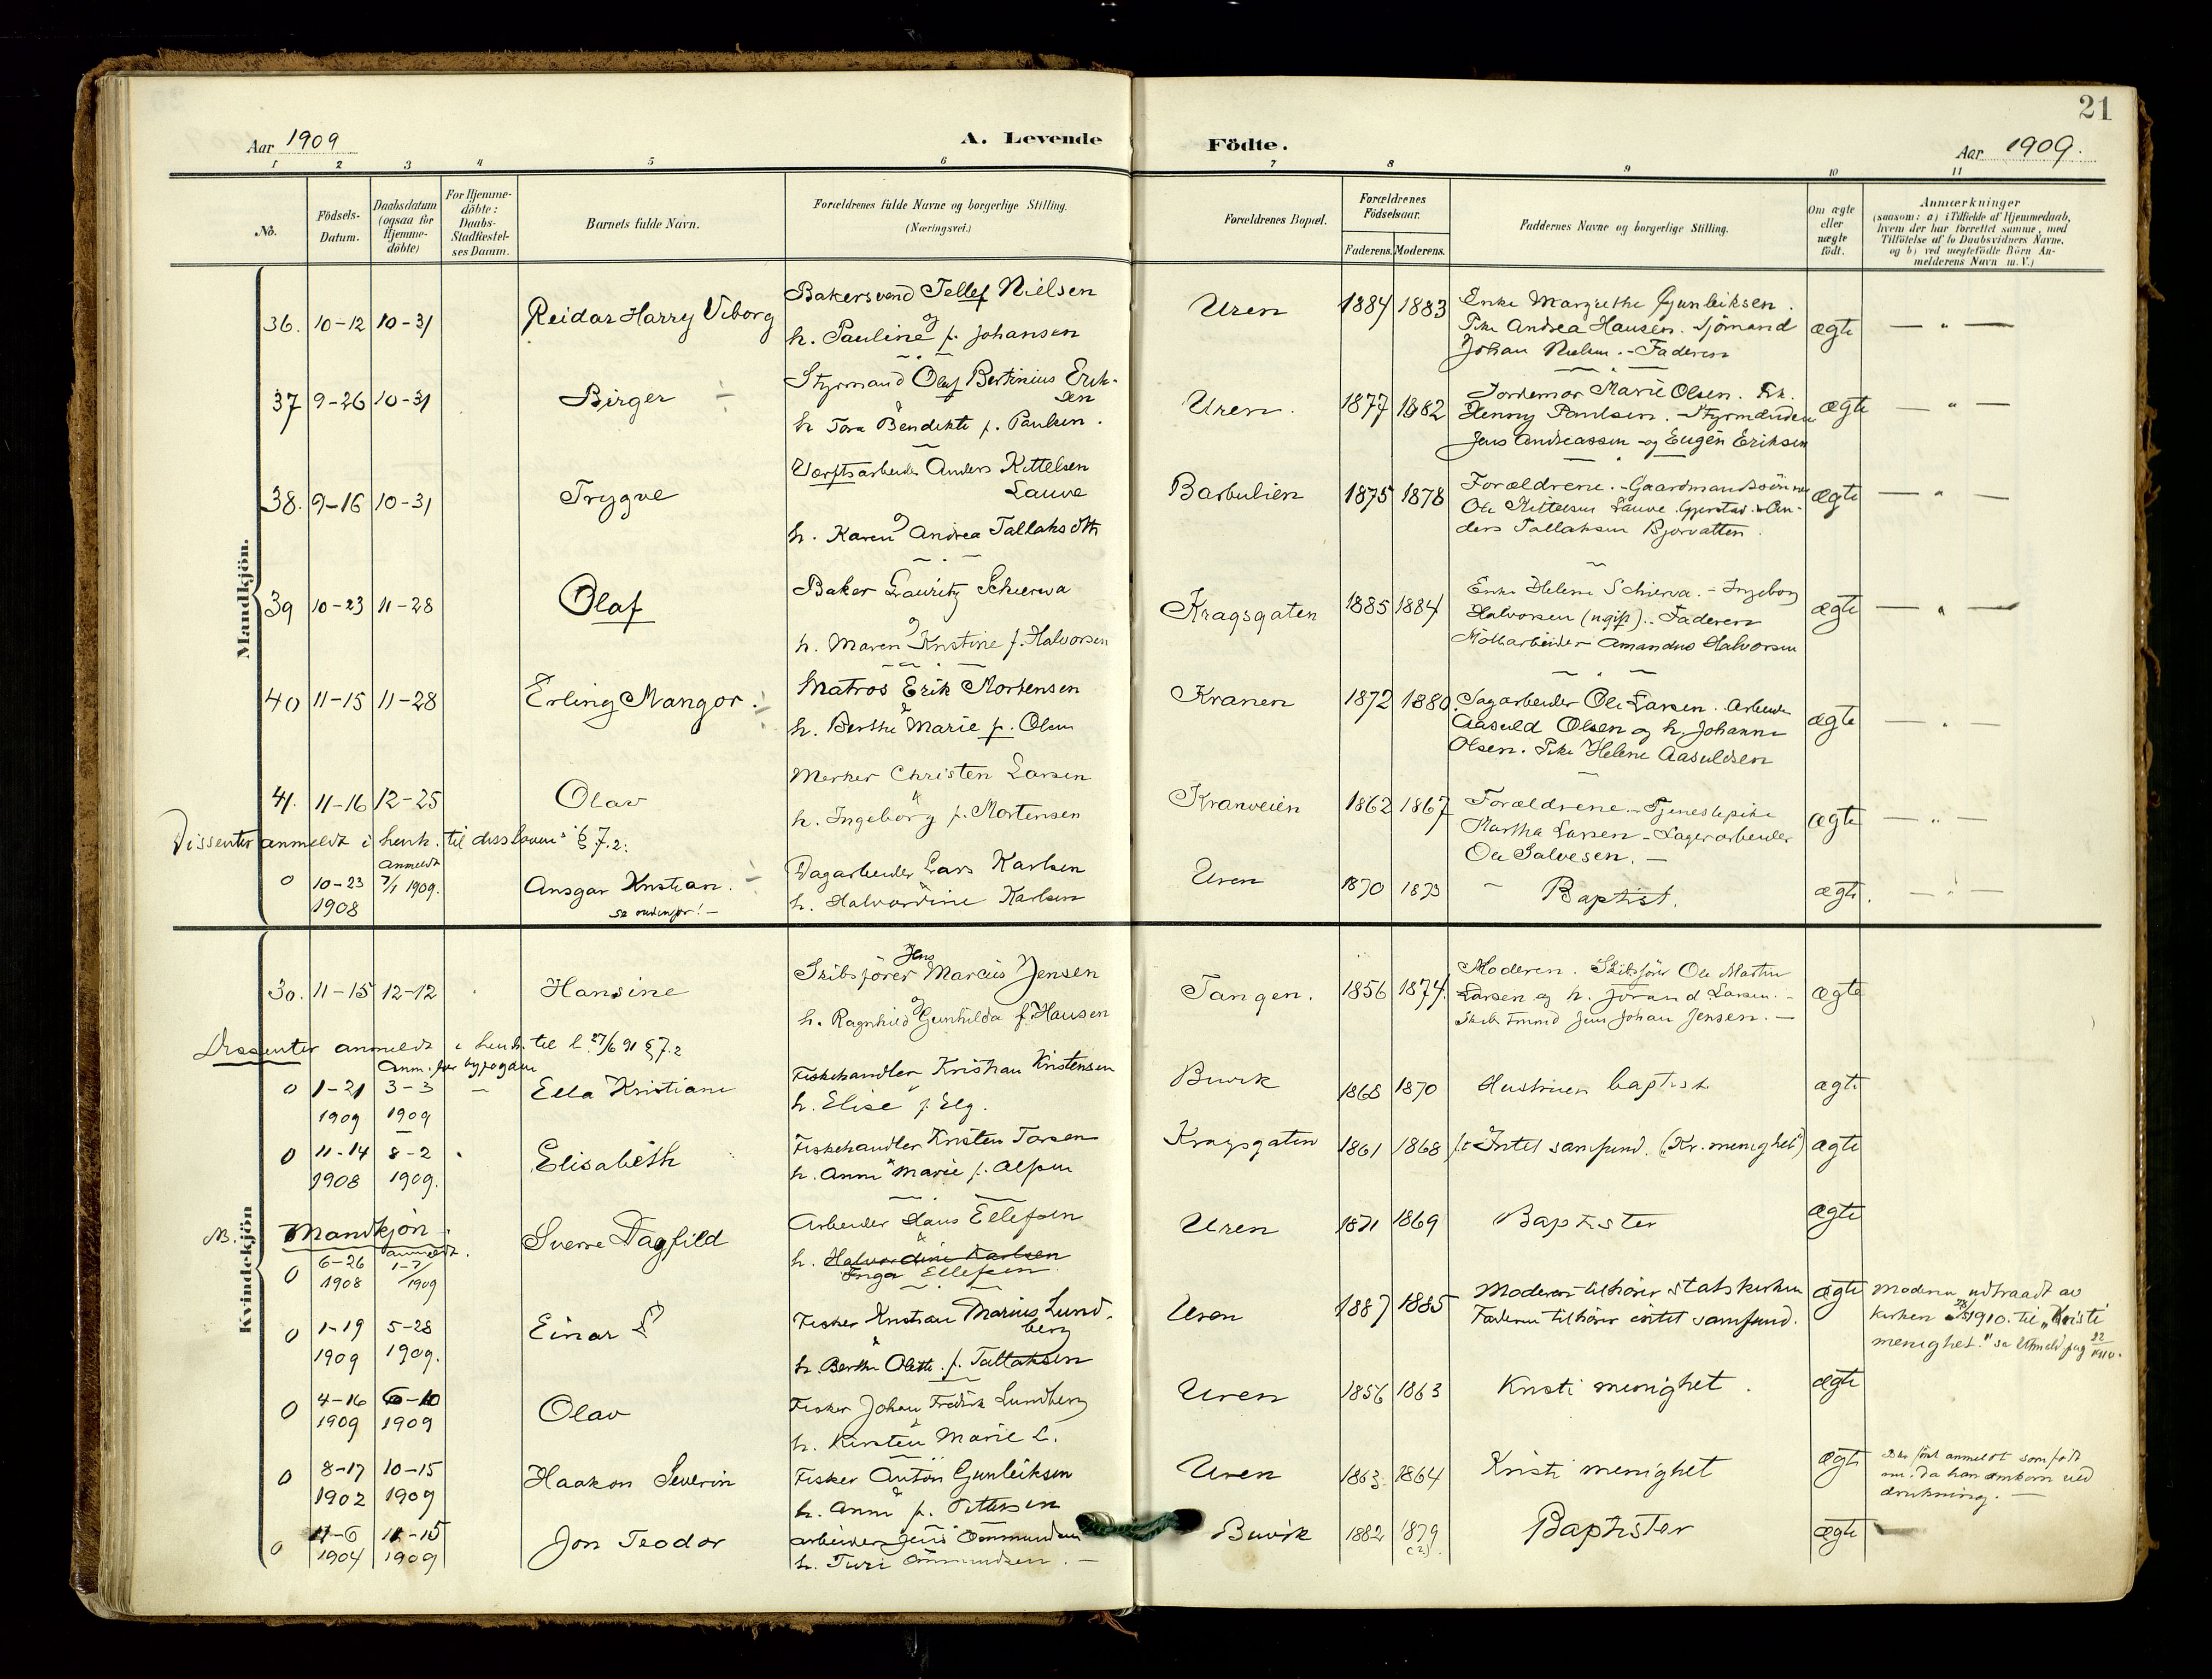 21
Aar 1909
A. Levende
Födte.
Aar 1909.
1 2 3 4 5 6 7 8 9 10 11
No.
Födsels-
Datum.
Daabsdatum
(ogsaa for
Hjemme-
döbte)
For Hjemme-
döbte:
Daabs-
Stadfæstel-
ses Datum.
Barnets fulde Navn.
Forældrenes fulde Navne og borgerlige Stilling.
(Næringsvei.)
Forældrenes Bopæl.
Forældrenes
Födselsaar.
Faderens. Moderens.
Faddernes Navne og borgerlige Stilling.
Om ægte
eller
uægte
födt.
Anmærkninger
(saasom: a) i Tilfælde af Hjemmedaab,
hvem der har forrettet samme, med
Tilföielse af to Daabsvidners Navne.
og b) ved uægtefödte Börn An-
melderens Navn m. V.)
Mandkjön.
36. 10-12 10-31
Reidar Harry Viborg
Bakersvend Tellef Nielsen
og
h. Pauline f. Johansen
Uren
1884 1883
Enke Margrethe Gunleiksen.
Pike Andrea Hansen. Sjömand
Johan Nielsen. - Faderen
ægte
37 9-26 10-31
Birger
Styrmand Olaf Bertinius Erik-
sen
h Tora Bendikte f. Paulsen.
Uren.
1877 1882
Jordemor Marie Olsen. Frk.
Henny Paulsen. - Styrmændene
Jens Andreassen - og Eugèn Eriksen
ægte
38. 9-16 10-31
Trygve
Værftsarbeider Anders Kittelsen
Lauve
og
h. Karen Andrea Tallaksdtr
Barbulien
1875 1878
Forældrene. - Gaardmandssönnen
Ole Kittelsen Lauve. Gjerstad. An-
ders Tallaksen Bjorvatten.
ægte
39 10-23 11-28
Olaf
Baker Lauritz Schierva
og
h. Maren Kristine f. Halvorsen
Kragsgaten
1885 1884
Enke Helene Schierva. - Ingeborg
Halvorsen (ugift). - Faderen
arbeider Amandus Halvorsen
ægte
40 11-15 11-28
Erling Mangor.
Matros Erik Mortensen
h. Berthe Marie f. Olsen
Kranen
1872 1880.
Sagarbeider Ole Larsen. Arbeider
Aasuld Olsen og h. Johanne
Olsen. Pike Helene Aasuldsen
ægte
41. 11-16 12-25
Olav
Merker Christen Larsen
h. Ingeborg f. Mortensen
Kranveien
1862 1867
Forældrene. - Tjenestepike
Martha Larsen - Lagerarbeider
Ole Salvesen. -
ægte
Dissenter anmeldt i henh. til disslovens § 7.2:
0 10-23
1908
anmeldt
7/1 1909.
Ansgar Kristian.
se nedenfor! -
Dagarbeider Lars Karlsen
h. Halvardine Karlsen
Uren
1870 1873
Baptist.
ægte.
Kvindekjön
30. 11-15 12-12
Hansine
Jens
Skibsförer Marcus Jensen
og
h. Ragnhild Gunhilda f. Hansen
Tangen.
1856 1874.
Moderen. Skibsförer Ole Martin
Larsen og h. Jorand Larsen. -
Jens Johan Jensen. -
ægte
Dissenter anmeldt i henh. til l. 27/6 91 § 7.2
Anm. for byfogden
0 1-21 3-3 -
1909 1909
Ella Kristiane
Fiskehandler Kristian Kristensen
h. Elise f. Elg.
Buvik
1868 1870
Hustruen baptist
ægte
0 11-14 8-2
1908 1909.
Elisabeth
Fiskehandler Kristen Torsen
h. Anne Marie f. Alfsen
Kragsgaten
1861 1868
Intet samfund. ("Kr. menighet")
ægte
NB. Mandkjön.
0 6-26
1908
anmeldt.
1-7/
1909
Sverre Dagfild
Arbeider Hans Ellefsen
h. Halvardine Karlsen
Inga Ellefsen
Uren
1871 1869
Baptister
ægte
0 1-19 5-28
1909 1909.
Einar
Fisker Kristian Marius Lund-
berg
h. Berthe Olette. f. Tallaksen
Uren
1887 1885
Moderen tilhörer Statskirken
Faderen tilhörer intet samfund.
ægte
Moderen udtraadt av
kirken 1910. til "Kristi
menighet."
0 4-16 6-10
1909 1909
Olav
Fisker Johan Fredrik Lundberg
h. Kirsten Marie L.
Uren
1856 1863
Kristi menighet.
ægte
0 8-17 10-15
1902 1909
Haakon Severin
Fisker Anton Gunleiksen
h. Anne f. Pettersen
Uren
1863. 1864
Kristi menighet
ægte
Blev först anmeldt som född
nu, da han omkom ved
drukning. -
0 11-6 11-15
1904 1909
Jon Teodor
arbeider Jens Ommundsen
h. Turi Ommundsen. -
Buvik
1882 1879
(?).
Baptister
ægte